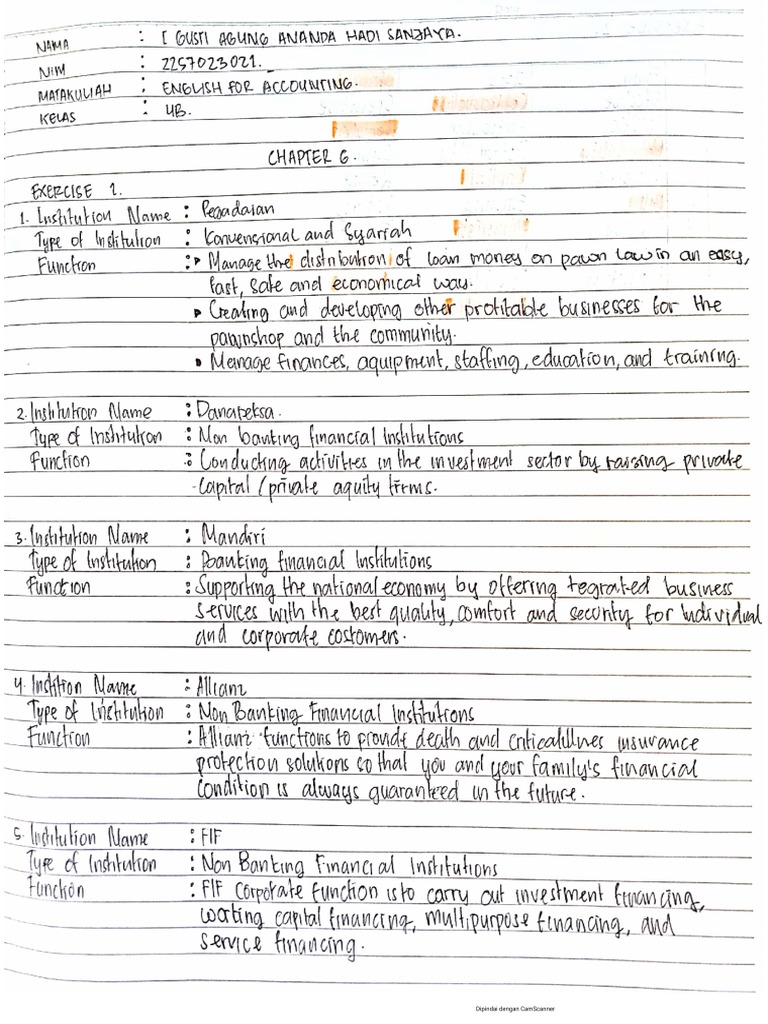 NAMA : I GUSTI AGUNG ANANDA HADI SANJAYA.
NIM : 2257023021.
MATAKULIAH : ENGLISH FOR ACCOUNTING.
KELAS : 4B.
CHAPTER 6.
EXERCISE 1.
1. Institution Name : Pegadaian
Type of Institution : Konvensional and Syariah
Function : • Manage the distribution of loan money on pawn law in an easy,
fast, safe and economical way.
• Creating and developing other profitable businesses for the
pawnshop and the community.
• Manage finances, aquipment, staffing, education, and training.
2. Institution Name : Danareksa.
Type of Institution : Non banking financial Institutions
Function : Conducting activities in the investment sector by raising private
capital / private aquity firms.
3. Institution Name : Mandiri
Type of Institution : Banking financial Institutions
Function : Supporting the national economy by offering tegrated business
services with the best quality, comfort and security for individual
and corporate costomers.
4. Instition Name : Allianz
Type of Institution : Non Banking Financial Institutions
Function : Allianz functions to provide death and critical illnes insurance
protection solutions so that you and your family's financial
condition is always guaranteed in the future.
5. Institution Name : FIF
Type of Institution : Non Banking Financial Institutions
Function : FIF corporate function is to carry out investment financing,
working capital financing, multipurpose financing, and
service financing.
Dipindai dengan CamScanner